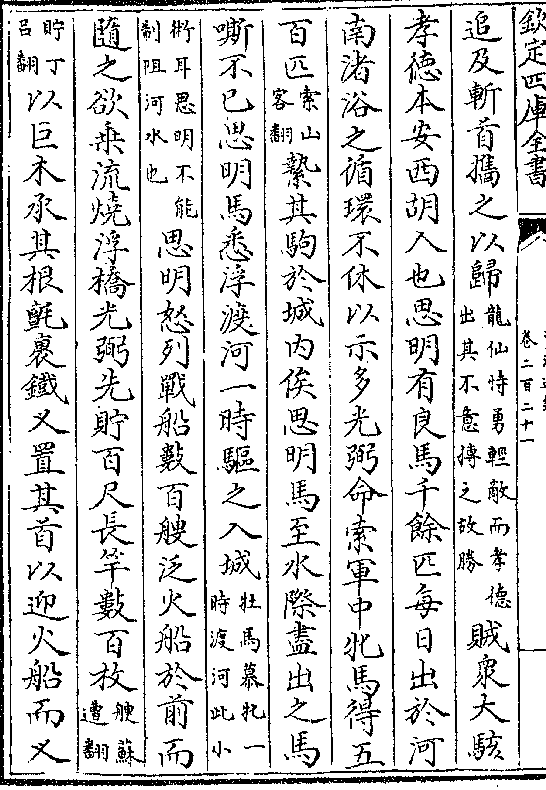 欽定四庫全書
卷二百二十一
追及斬首攜之以歸龍仙恃勇輕敵而孝德出其不意搏之故勝賊衆大駭
孝德本安西胡人也思明有良馬千餘匹每日出於河
南渚浴之循環不休以示多光弼命索軍中牝馬得五
百匹索山客翻縶其駒於城内俟思明馬至水際盡出之馬
嘶不已思明馬悉浮渡河一時驅之入城牡馬慕牝一時渡河此小
術耳思明不能制阻河水也思明怒列戰船數百艘泛火船於前而
隨之欲乘流燒浮橋光弼先貯百尺長竿數百枚艘蘇遭翻
貯丁呂翻以巨木承其根氈裹鐵叉置其首以迎火船而叉